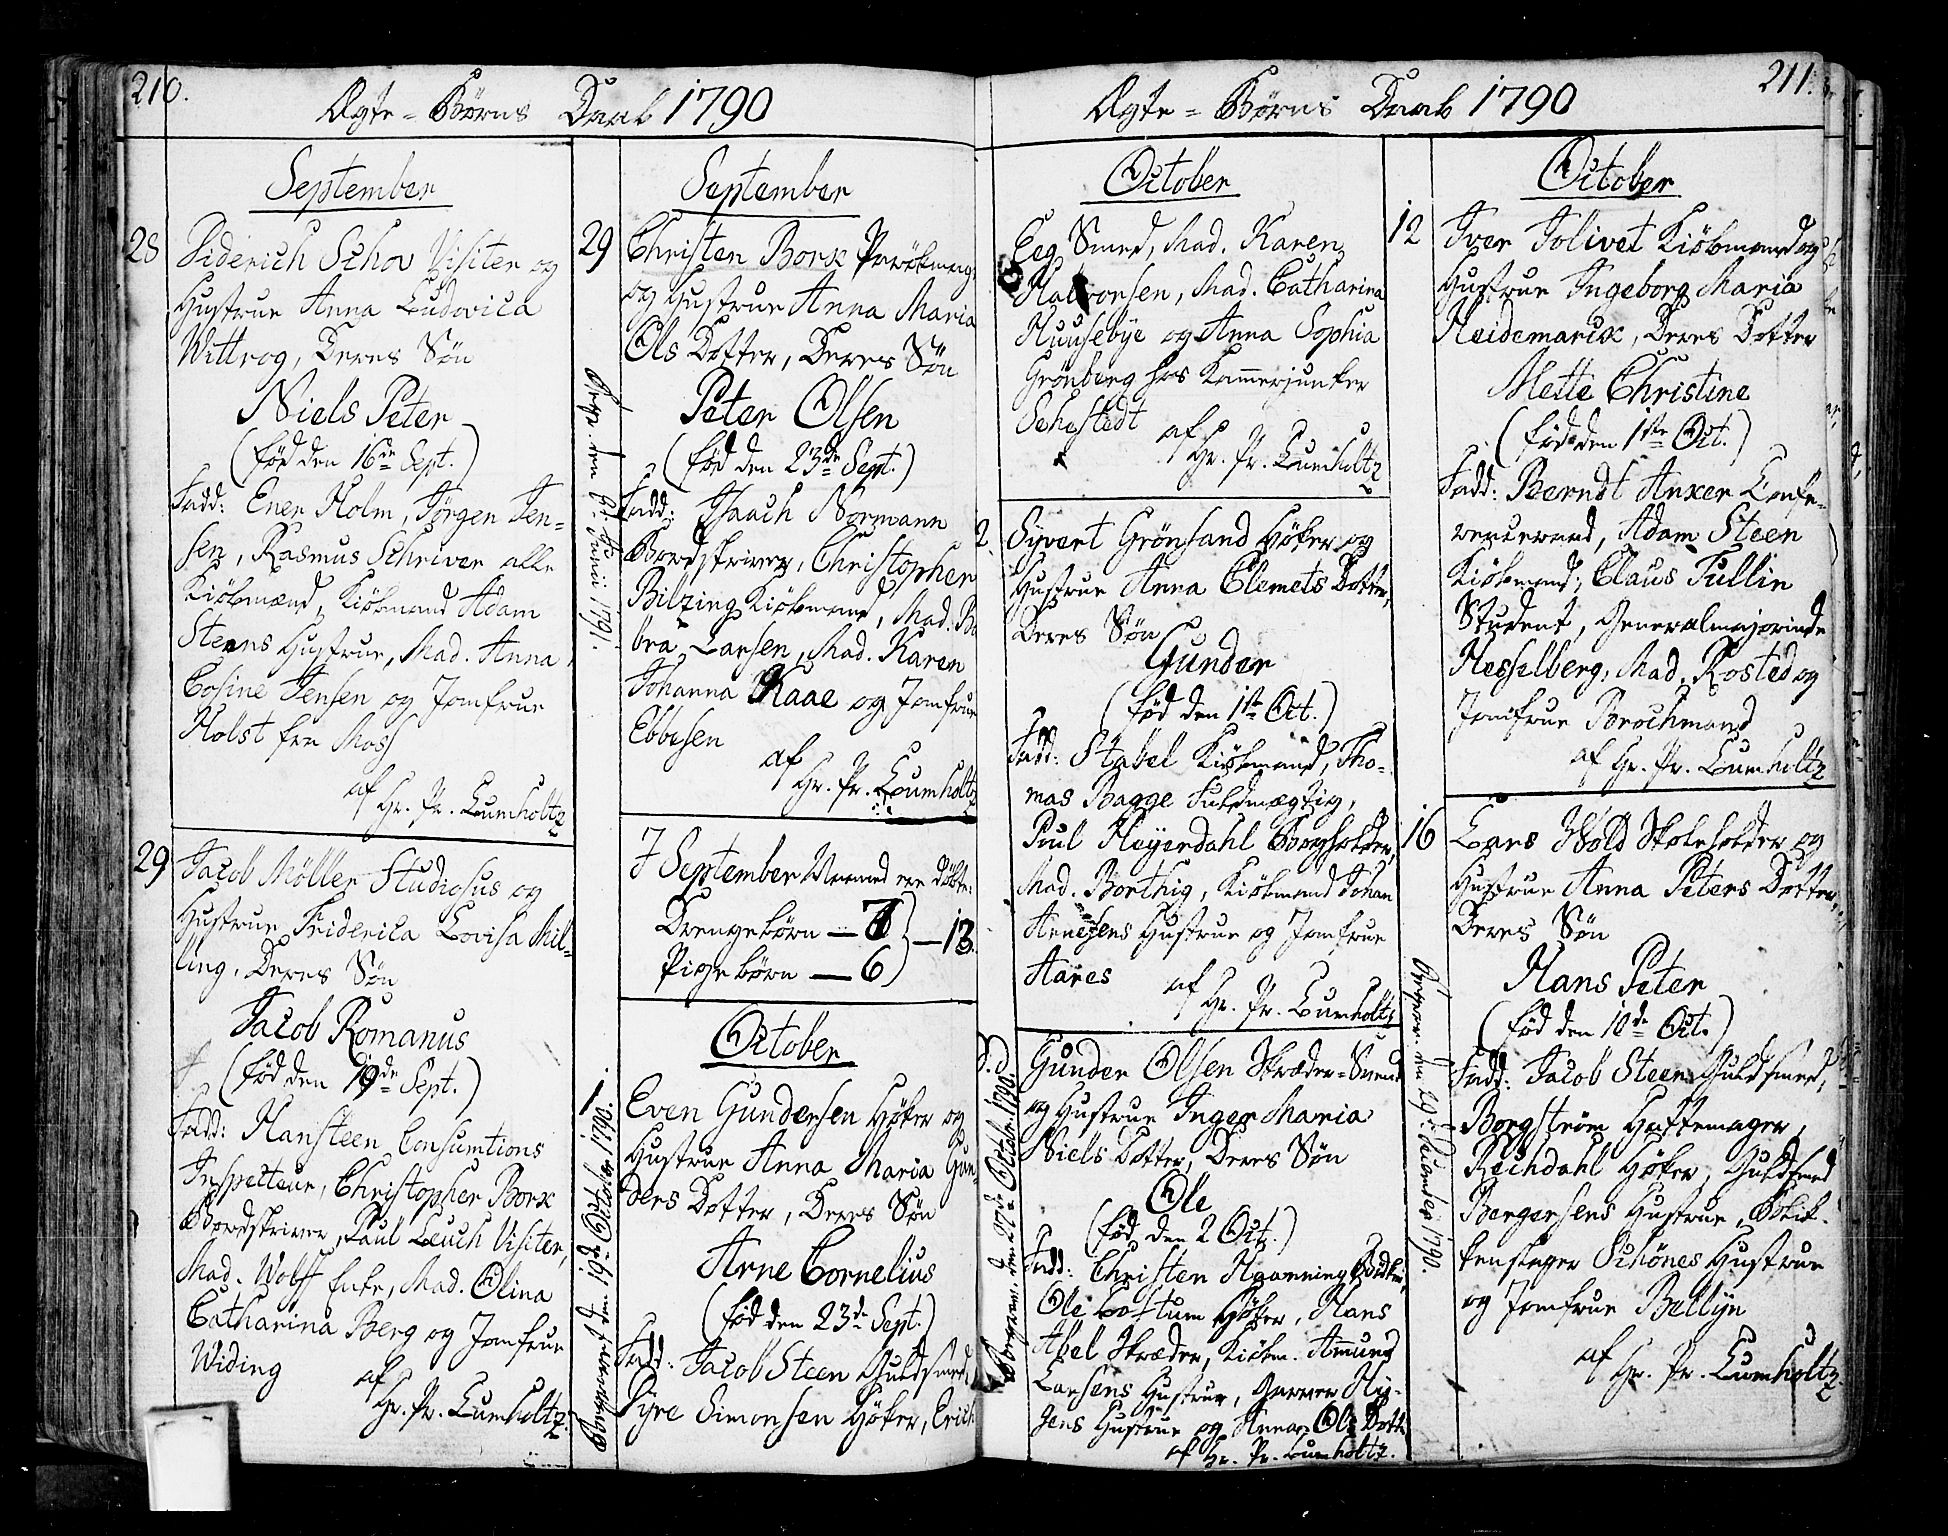 210.
Ægte-Børns Daab 1790
September
28 Diderich Schov Visiter og
Hustrue Anna Ludovica
Wittrog, Deres Søn
Niels Peter
(født den 16de Sept.)
Fadd: Ener Holm, Jørgen Jen-
sen, Rasmus Schriver alle
Kiøbmænd, Kiøbmand Adam
Steens Hustrue, Mad. Anna
Cosine Jensen og Jomfrue
Holst fra Moss
af Hr. Pr. Lumholtz
29 Jacob Möller Studiosus og
Hustrue Friderica Lovisa Mil-
ling, Deres Søn
Jacob Romanus
(Død den 19de Sept.)
Fadd: Hansteen Consumtions
Inspecteur, Christopher Borx
Bordskriver, Paul Leuch Visiter,
Mad. Wolff Enke, Mad. Olina
Catharina Berg og Jomfrue
Widing
af Hr. Pr. Lumholtz
September
29 Christen Borx
og Hustrue Anna Maria
Ols Dotter, Deres Søn
Peter Olsen
(født den 23de Sept.)
Fadd: Isaach Normann
Bordskriver, Christopher
Bilzing Kiøbmand, Mad. Ba
bra Larsen, Mad. Karen
Johanna Kaae og Jomfrue
Ebbesen
af Hr. Pr. Lumholtz
den 6: Junii 1791.
I September Maaned ere døbte:
Drengebørn — 7
Pigebørn — 6
— 13.
October
1. Even Gundersen Høker og
Hustrue Anna Maria Gun-
ders Dotter, Deres Søn
Arne Cornelius
(født den 23de Sept.)
Fadd: Jacob Steen Guldsmed,
Syre Simonsen Høker, Erich
Borgraved den 19de October 1790.
211.
Ægte-Børns Daab 1790
October
Eeg Smed, Mad. Karen
Halvorsen, Mad. Catharina
Huusebye og Anna Sophia
Grönberg hos Kammerjunker
Sehestedt
af Hr. Pr. Lumholtz
2. Syvert Grönsand Høker og
Hustrue Anna Clemets Dotter,
Deres Søn
Gunder
(født den 1ste Oct.)
Fadd: Stabel Kiøbmand, Tho-
mas Bagge Fuldmægtig,
Poul Heyerdahl Borgholder,
Mad. Borthig, Kiøbmand Johan
Arnesens Hustrue og Jomfrue
Aares
af Hr. Pr. Lumholtz
D.d Gunder Olsen Skræder-Svend
og Hustrue Inger Maria
Niels Dotter, Deres Søn
Ole
(født den 2 Oct.)
Fadd: Christen Haanning
Ole Costum Høker, Hans
Abel Skræder, Kiøbm. Amund
Larsens Hustrue, Garver Hy-
gens Hustrue og Anna Ole Dott.
af Hr. Pr. Lumholtz.
den 21de October 1790.
October
12 Iver Jolivet Kiøbmand og
Hustrue Ingeborg Maria
Heidemarck, Deres Dotter
Mette Christine
(født den 1ste Oct.)
Fadd: Berndt Anker Confe-
renceraad, Adam Steen
Kiøbmand, Claus Tullin
Student, Generalmajorinde
Hesselberg, Mad. Rosted og
Jomfrue Brochmand
af Hr. Pr. Lumholtz
16 Lars Wold Skoleholder og
Hustrue Anna Peters Dotter,
Deres Søn
Hans Peter
(født den 10de Oct.)
Fadd: Jacob Steen Guldsmed,
Borgström Hattemager,
Reichdahl Høker, Guldsmed
Bergersens Hustrue,
Schönes Hustrue
og Jomfrue Bellyn
af Hr. Pr. Lumholtz
den 29: December 1790.